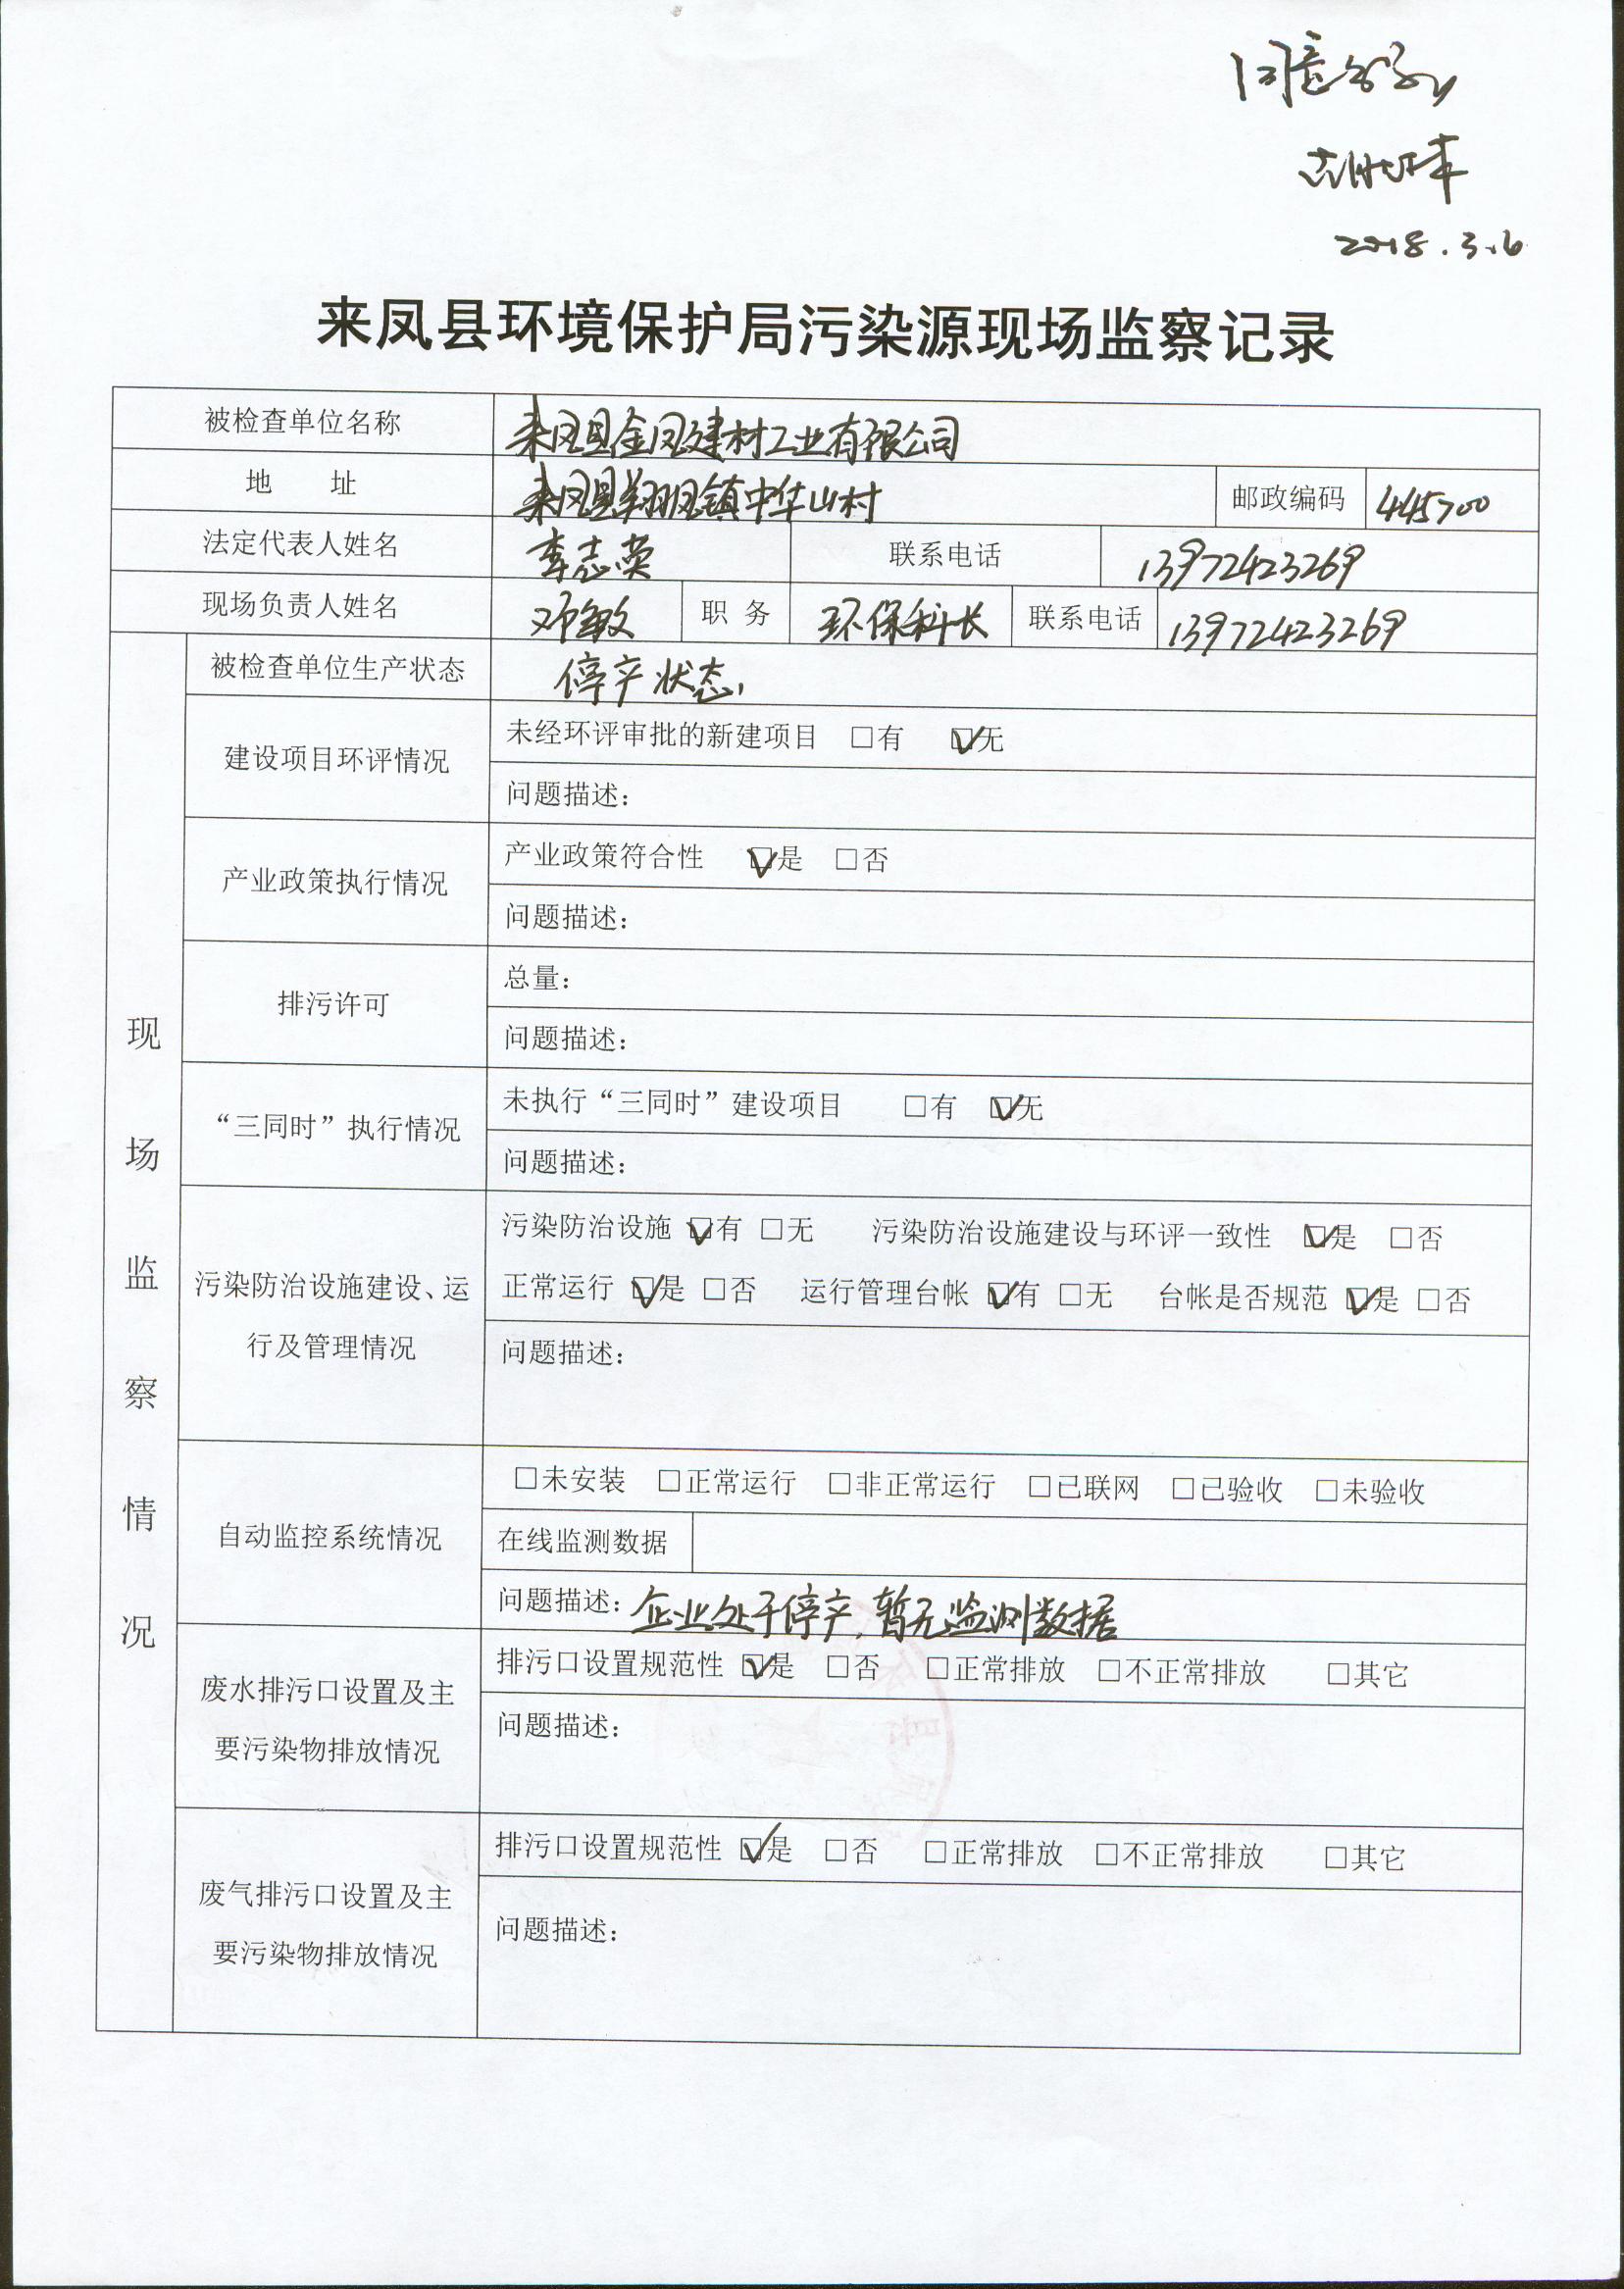 同意公示
2018.3.6
来凤县环境保护局污染源现场监察记录
被检查单位名称 来凤县金凤建材工业有限公司
地 址 来凤县翔凤镇中华山村 邮政编码 445700
法定代表人姓名 李志荣 联系电话 13972423269
现场负责人姓名 邓敏 职 务 环保科长 联系电话 13972423269
现场监察情况
被检查单位生产状态 停产状态
建设项目环评情况
未经环评审批的新建项目 □有 ☑无
问题描述：
产业政策执行情况
产业政策符合性 ☑是 □否
问题描述：
排污许可
总量：
问题描述：
“三同时”执行情况
未执行“三同时”建设项目 □有 ☑无
问题描述：
污染防治设施建设、运
行及管理情况
污染防治设施 ☑有 □无 污染防治设施建设与环评一致性 ☑是 □否
正常运行 ☑是 □否 运行管理台帐 ☑有 □无 台帐是否规范 ☑是 □否
问题描述：
自动监控系统情况
□未安装 □正常运行 □非正常运行 □已联网 □已验收 □未验收
在线监测数据
问题描述：企业处于停产，暂无监测数据
废水排污口设置及主
要污染物排放情况
排污口设置规范性 ☑是 □否 □正常排放 □不正常排放 □其它
问题描述：
废气排污口设置及主
要污染物排放情况
排污口设置规范性 ☑是 □否 □正常排放 □不正常排放 □其它
问题描述：